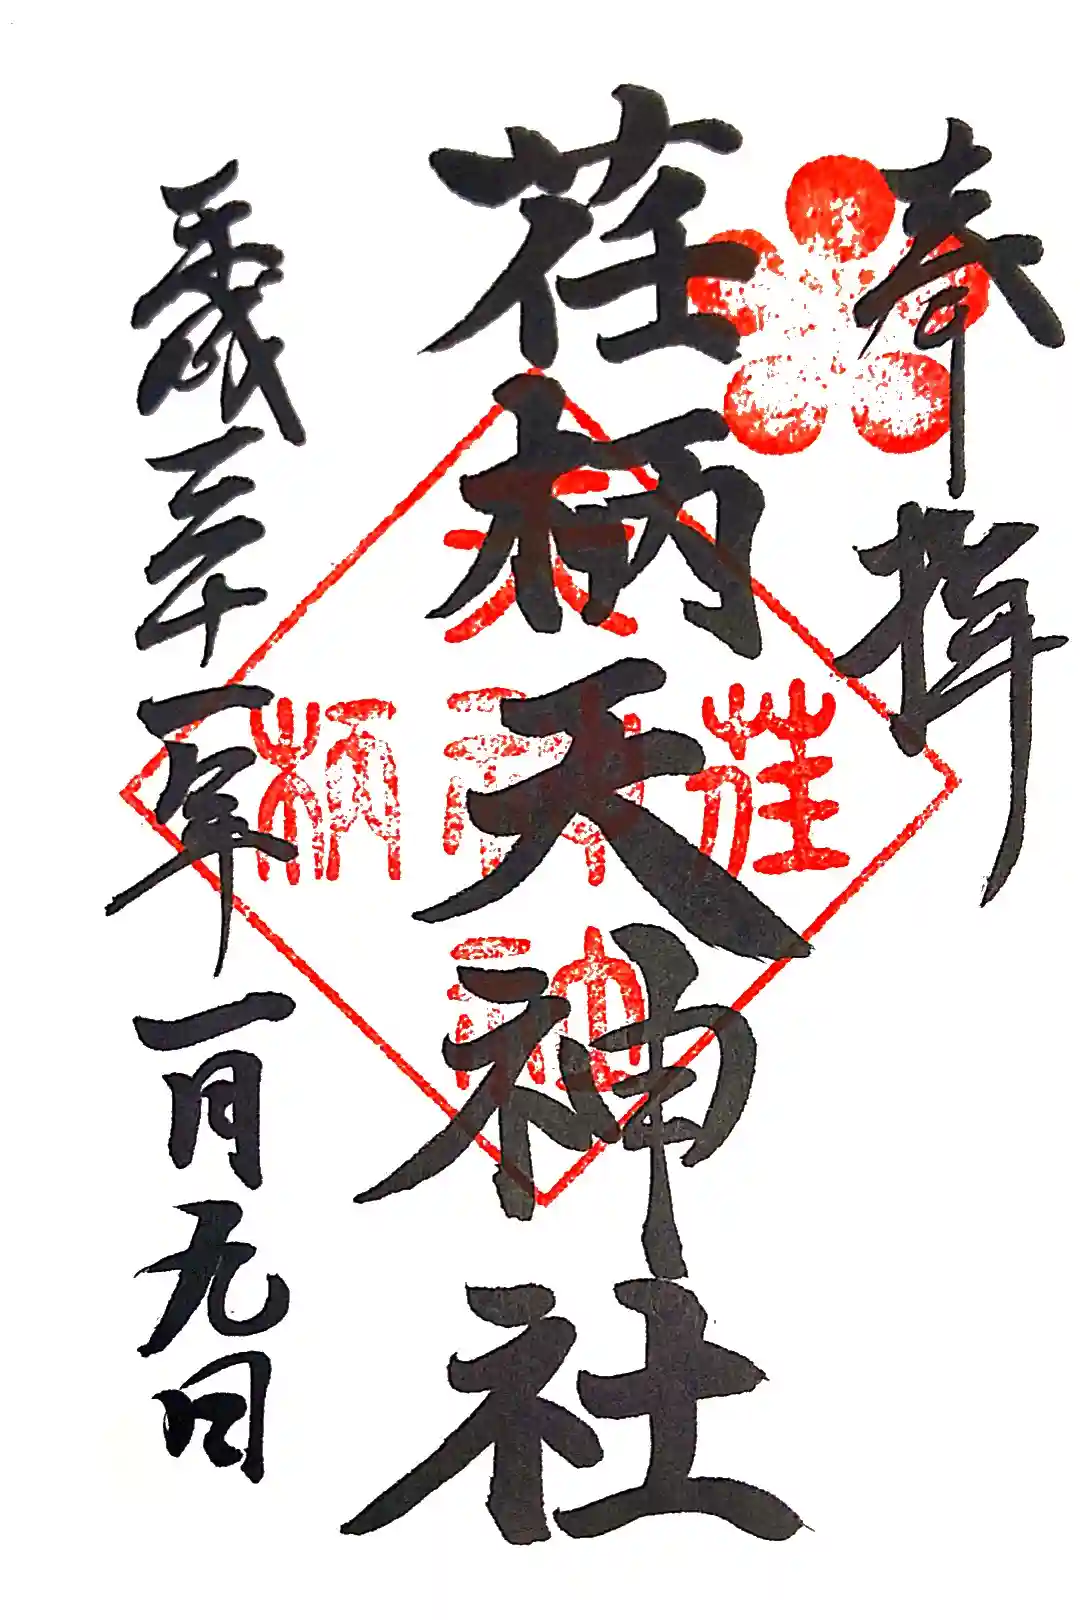 奉拝
荏柄天神社
平成三十一年一月九日
天
荏神柄
社